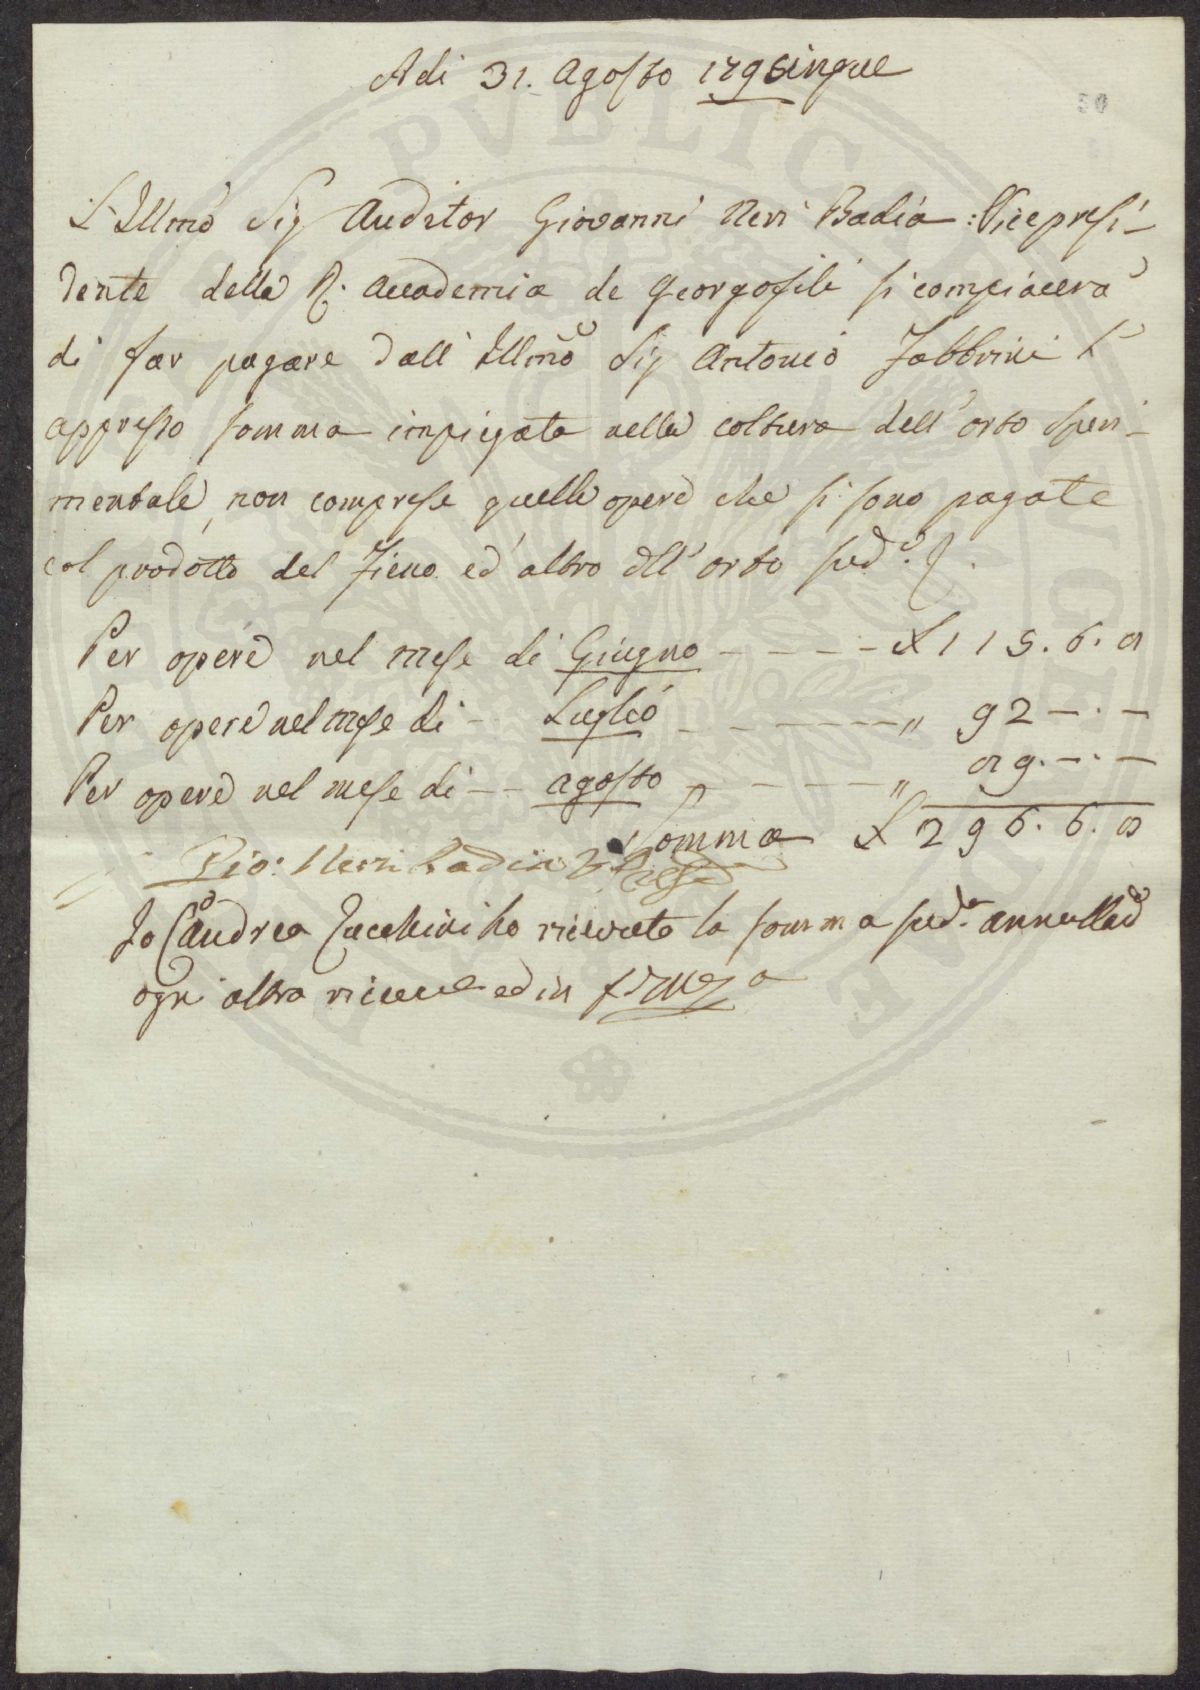 Adi 31. Agosto 179 Cinque
50
L'Illmo Sig Auditor Giovanni Neri Badia Vicepresi-
dente della R. Accademia de Georgofili si compiacerà
di far pagare dall'Illmo Sig Antonio Fabbrini l'
appresso somma impiegata nella coltura dell'orto speri-
mentale, non comprese quelle opere che si sono pagate
col prodotto del Fieno ed altro dll'orto sudo.
Per opere nel mese di Giugno ---- £ 115.6.8
Per opere nel mese di -- Luglio ---- " 92 -.-
Per opere nel mese di -- agosto ---- " 89.-.-
Somma £ 296.6.8
Gio: Neri Badia V. Presid
Io Andrea Zucchini ho ricevuto la somma suda.
ogni altra ed in
PVBLIC